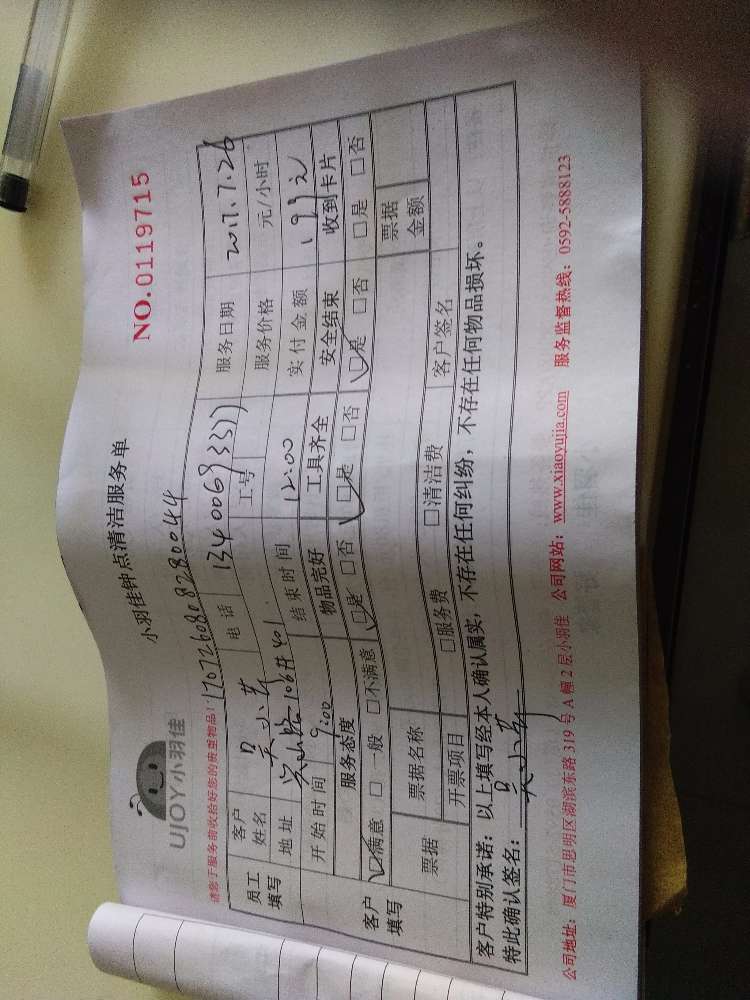 UJOY小羽佳
小羽佳钟点清洁服务单
NO.0119715
请您于服务前收拾好您的贵重物品!
1707260808280044
员工填写
客户姓名 吴小芳 电话 13400693377 服务日期 2017.7.26
工号 服务价格 元/小时
地址 106# 401
开始时间 9:00 结束时间 12:00 实付金额
客户填写
服务态度 物品完好 工具齐全 安全结束 收到卡片
☑满意 □一般 □不满意 ☑是 □否 ☑是 □否 ☑是 □否 □是 □否
票据 票据名称 票据金额
开票项目 □服务费 □清洁费 客户签名
客户特别承诺:以上填写经本人确认属实,不存在任何纠纷,不存在任何物品损坏。
特此确认签名:吴小芳
公司地址:厦门市思明区湖滨东路319号A幢2层小羽佳 公司网站:www.xiaoyujia.com 服务监督热线:0592-5888123